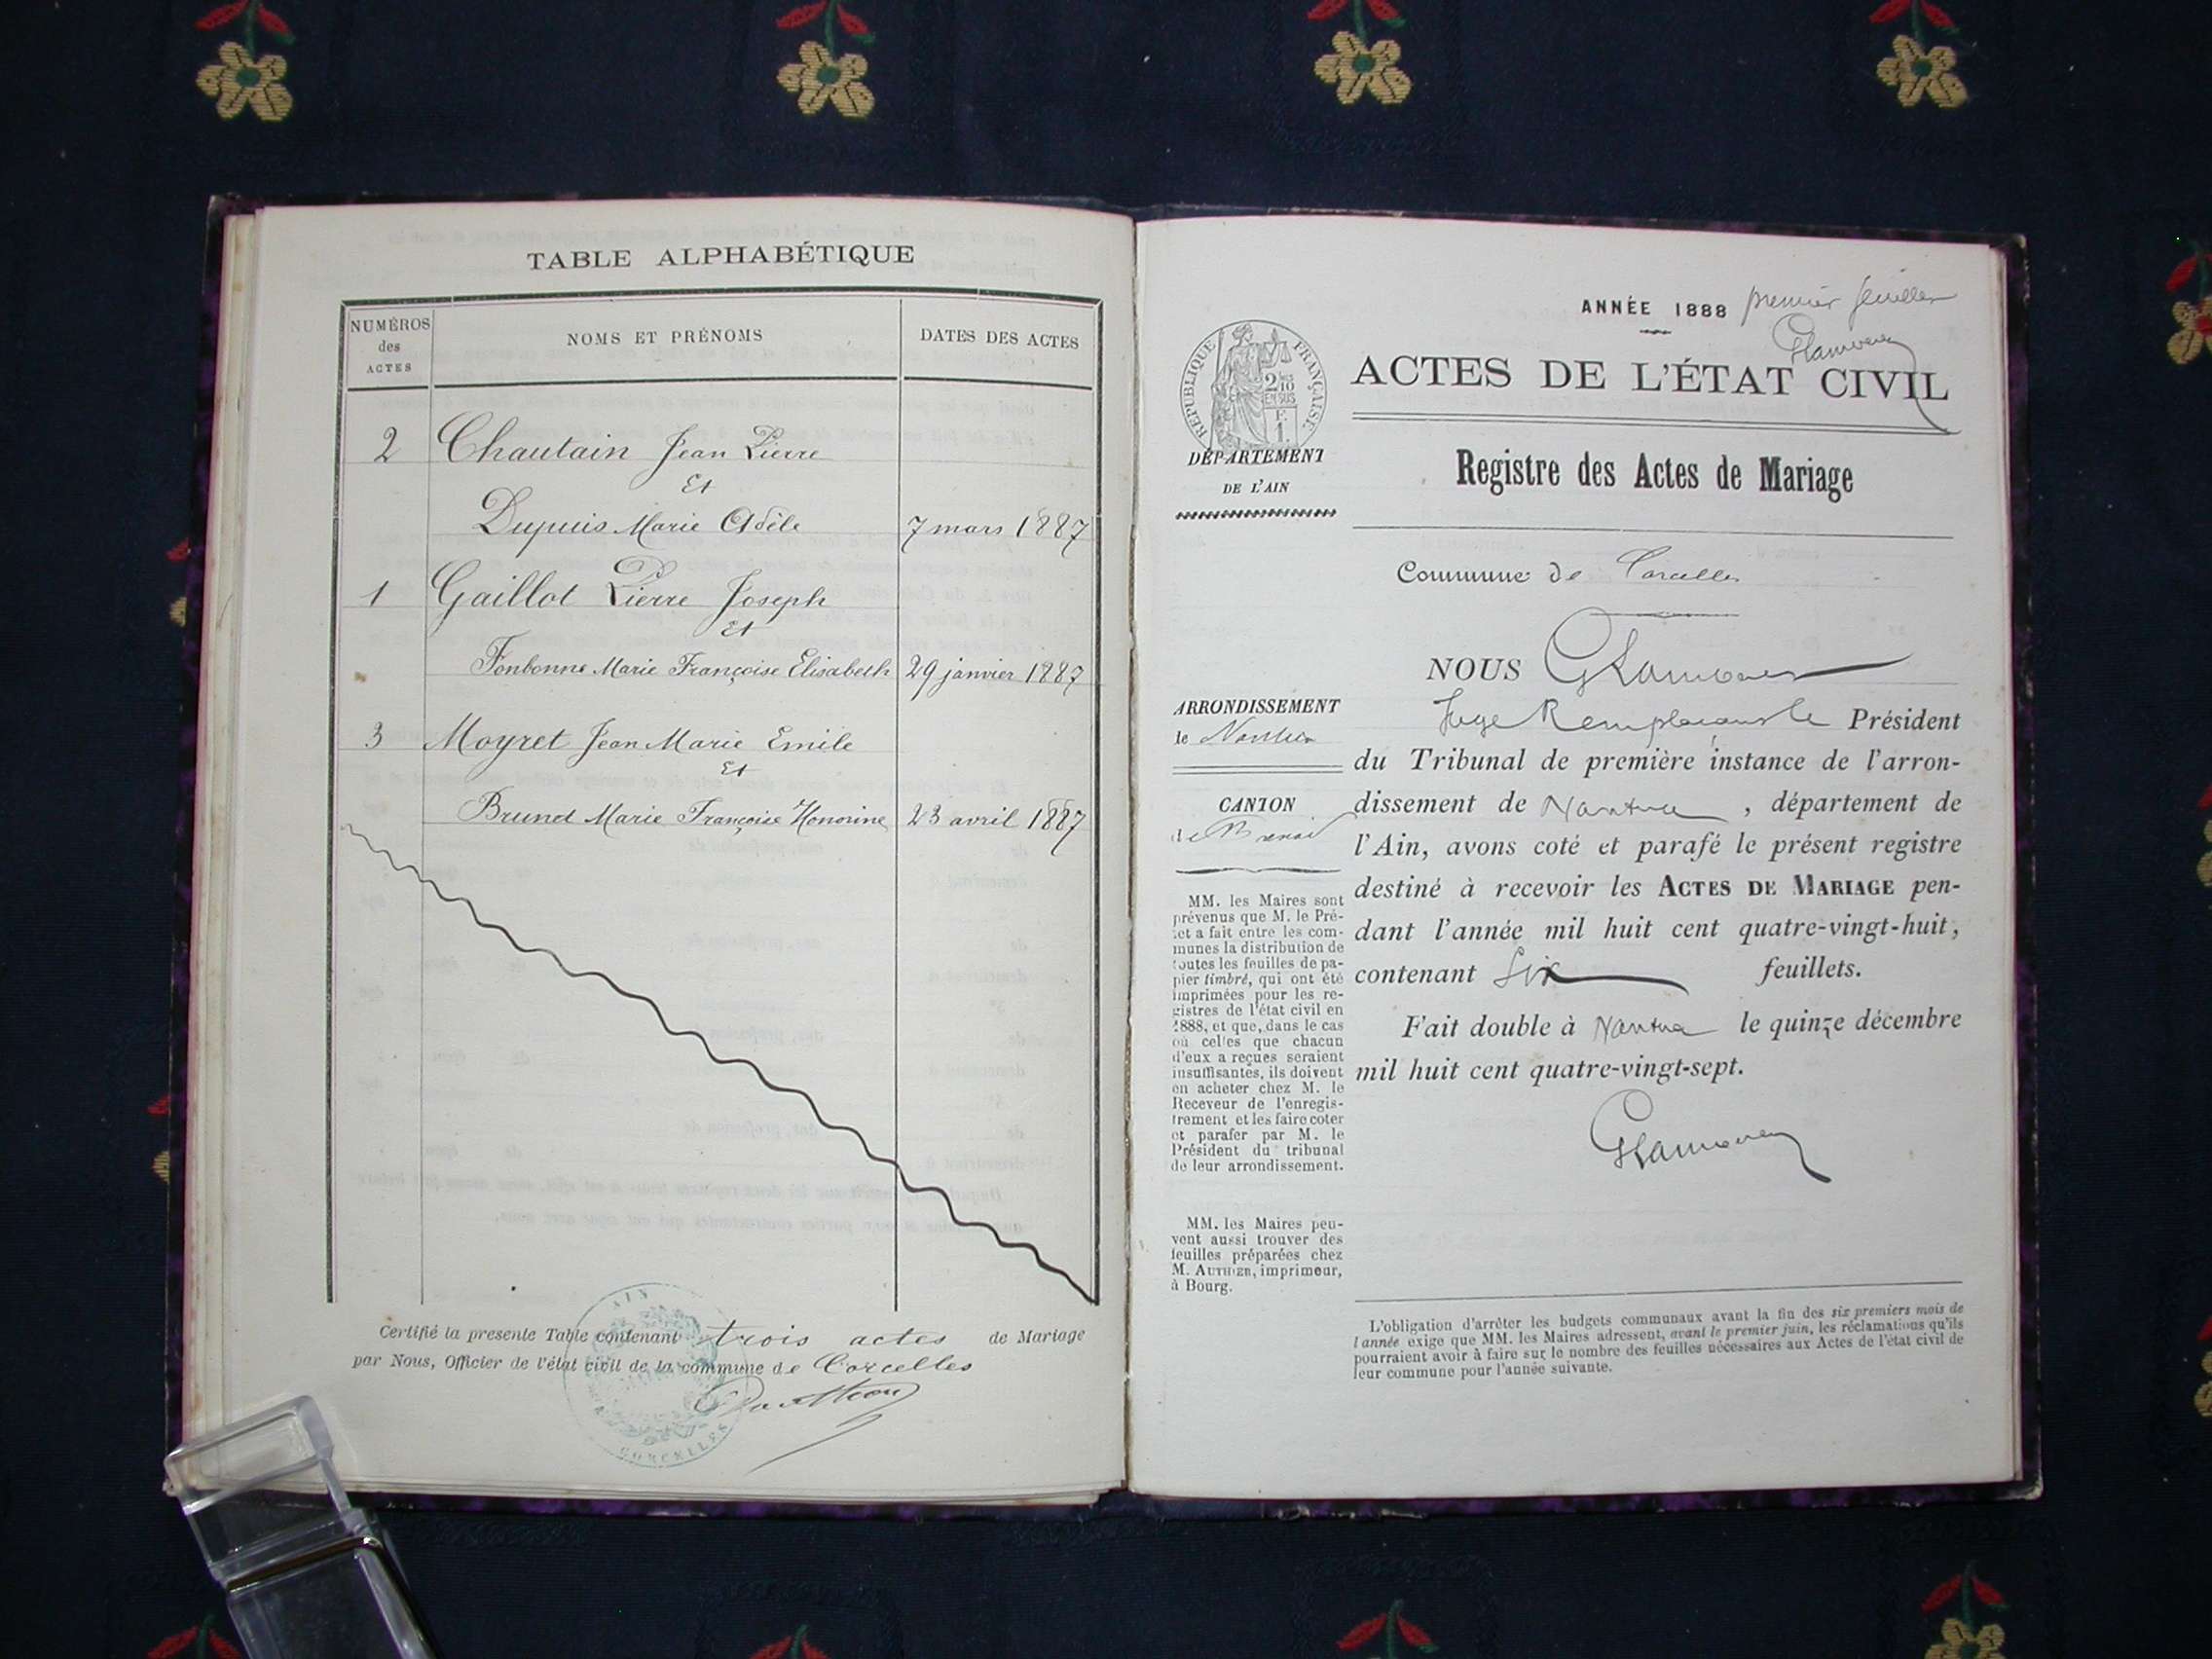 TABLE ALPHABÉTIQUE
NUMÉROS des ACTES
NOMS ET PRÉNOMS
DATES DES ACTES
2 Chautain Jean Pierre
Et
Dupuis Marie Adèle 7 mars 1887
1 Gaillot Pierre Joseph
Et
Fonbonne Marie Françoise Elisabeth 29 janvier 1887
3 Moyret Jean Marie Emile
Et
Brunet Marie Françoise Honorine 23 avril 1887
Certifié la presente Table contenant trois actes de Mariage
par Nous, Officier de l'état civil de la commune de Corcelles
AIN
CORCELLES
ANNÉE 1888 premier feuillet
RÉPUBLIQUE FRANÇAISE
2 10 EN SUS
F. 1.
ACTES DE L'ÉTAT CIVIL
DÉPARTEMENT
DE L'AIN
Registre des Actes de Mariage
Commune de Corcelles
NOUS
Juge Remplaçant le Président
du Tribunal de première instance de l'arron-
dissement de Nantua, département de
l'Ain, avons coté et parafé le présent registre
destiné à recevoir les ACTES DE MARIAGE pen-
dant l'année mil huit cent quatre-vingt-huit,
contenant Six feuillets.
Fait double à Nantua le quinze décembre
mil huit cent quatre-vingt-sept.
ARRONDISSEMENT
de Nantua
CANTON
de Brenod
MM. les Maires sont
prévenus que M. le Pré-
fet a fait entre les com-
munes la distribution de
toutes les feuilles de pa-
pier timbré, qui ont été
imprimées pour les re-
gistres de l'état civil en
1888, et que, dans le cas
où celles que chacun
d'eux a reçues seraient
insuffisantes, ils doivent
en acheter chez M. le
Receveur de l'enregis-
trement et les faire coter
et parafer par M. le
Président du tribunal
de leur arrondissement.
MM. les Maires peu-
vent aussi trouver des
feuilles préparées chez
M. AUTHIER, imprimeur,
à Bourg.
L'obligation d'arrêter les budgets communaux avant la fin des six premiers mois de
l'année exige que MM. les Maires adressent, avant le premier juin, les réclamations qu'ils
pourraient avoir à faire sur le nombre des feuilles nécessaires aux Actes de l'état civil de
leur commune pour l'année suivante.